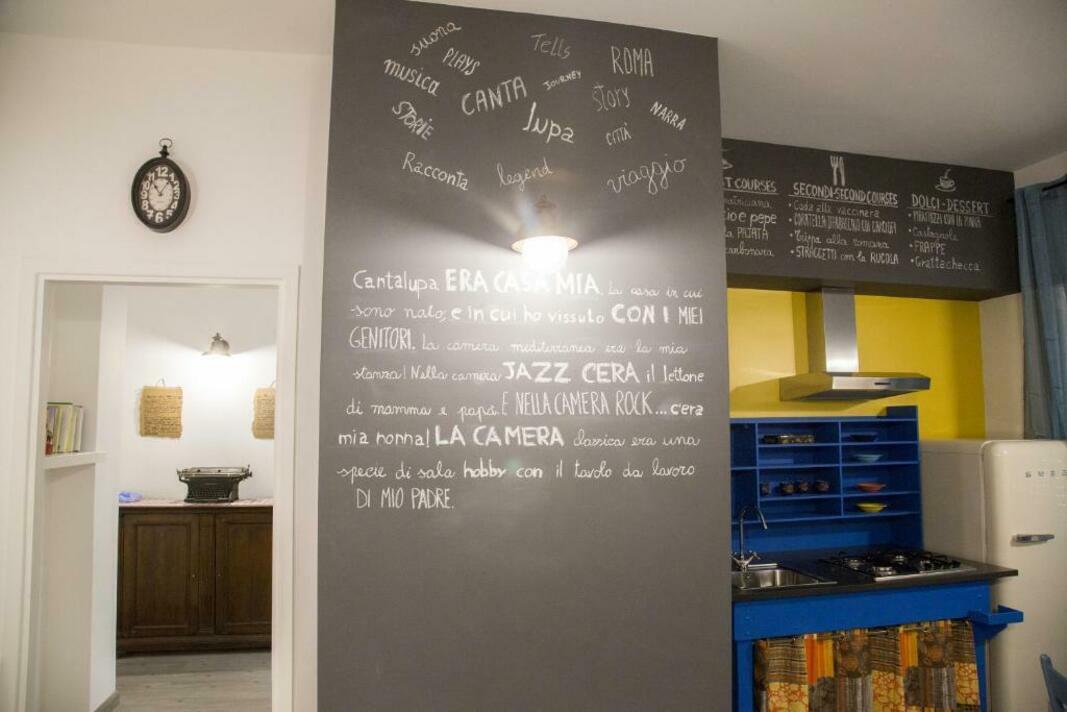 suona
PLAYS
Tells
ROMA
musica
CANTA
JOURNEY
story
NARRA
STORIE
lupa
CITTÀ
Racconta
legend
viaggio
Cantalupa ERA CASA MIA. La casa in cui
sono nato, e in cui ho vissuto CON I MIEI
GENITORI. La camera mediterranea era la mia
stanza! Nella camera JAZZ CERA il lettone
di mamma e papà. E NELLA CAMERA ROCK... c'era
mia nonna! LA CAMERA classica era una
specie di sala hobby con il tavolo da lavoro
DI MIO PADRE.
T COURSES
atriciana
io e pepe
la PAJATA
carbonara
SECONDI-SECOND COURSES
• Coda alla vaccinara
• CORATELLA D'ABBACCHIO CON CARCIOFI
• Trippa alla romana
• STRACCETTI con la RUCOLA
DOLCI-DESSERT
• MARITOZZI CON LA PANNA
• Castagnole
• FRAPPE
• Grattachecca
SMEG
12